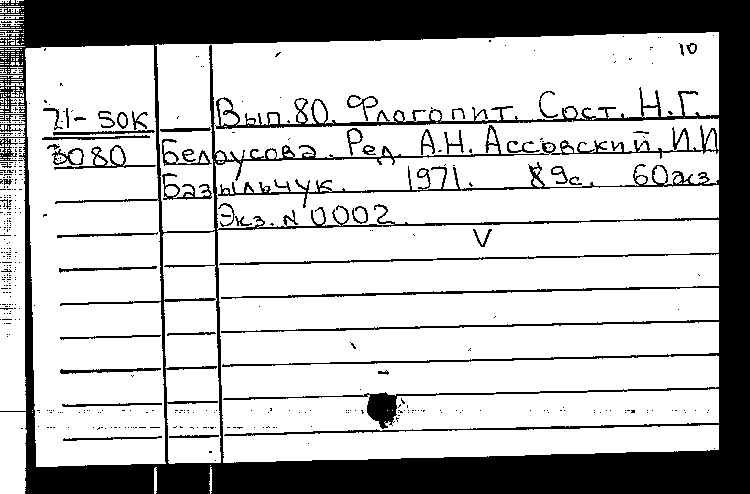 10
71-50к Вып.80. Флогопит. Сост. Н.Г.
3080 Белоусова. Ред. А.Н. Ассовский, И.И
Базыльчук. 1971. 89с. 60экз.
Экз. N 0002.
V